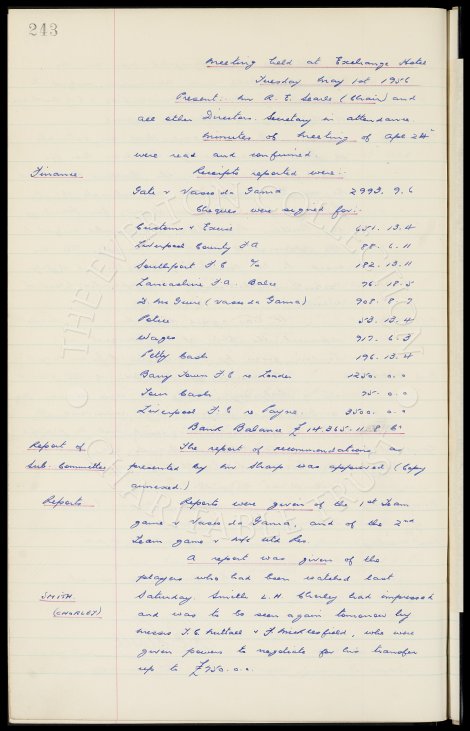 243
Meeting held at Exchange Hotel
Tuesday May 1st 1956
Present: Mr R. E. Searle (Chair) and
all other Directors. Secretary in attendance
Minutes of Meeting of Apl 24th
were read and confirmed.
Finance. Receipts reported were:-
Gate v Vasco da Gama 2993. 9. 6
Cheques were signed for:-
Customs & Excise 651. 13. 4
Liverpool County F.A. 88. 6. 11
Southport F.C. % 182. 13. 11
Lancashire F.A. Balce 76. 18. 5
D. (Vasco da Gama) 908. 8. 7
Police 53. 13. 4
Wages 717. 6. 3
Petty Cash 196. 13. 4
Barry Town F.C. re 1250. 0. 0
Tour Cash 75. 0. 0
Liverpool F.C. re Payne. 3500. 0. 0
Bank Balance £14,365. 11. 8
Report of The report of recommendations, as
Sub. Committee. presented by Mr Sharp was approved (copy
annexed)
Reports Reports were given of the 1st Team
game v Vasco da Gama, and of the 2nd
Team game v M/c Utd Res.
A report was given of the
players who had been watched last
SMITH. Saturday. Smith L.H. Chorley had impressed
(CHORLEY) and was to be seen again tomorrow by
Messrs T.C. Nuttall & F. Micklesfield, who were
given powers to negotiate for his transfer
up to £750. 0. 0.
THE EVERTON COLLECTION
CHARITABLE TRUST